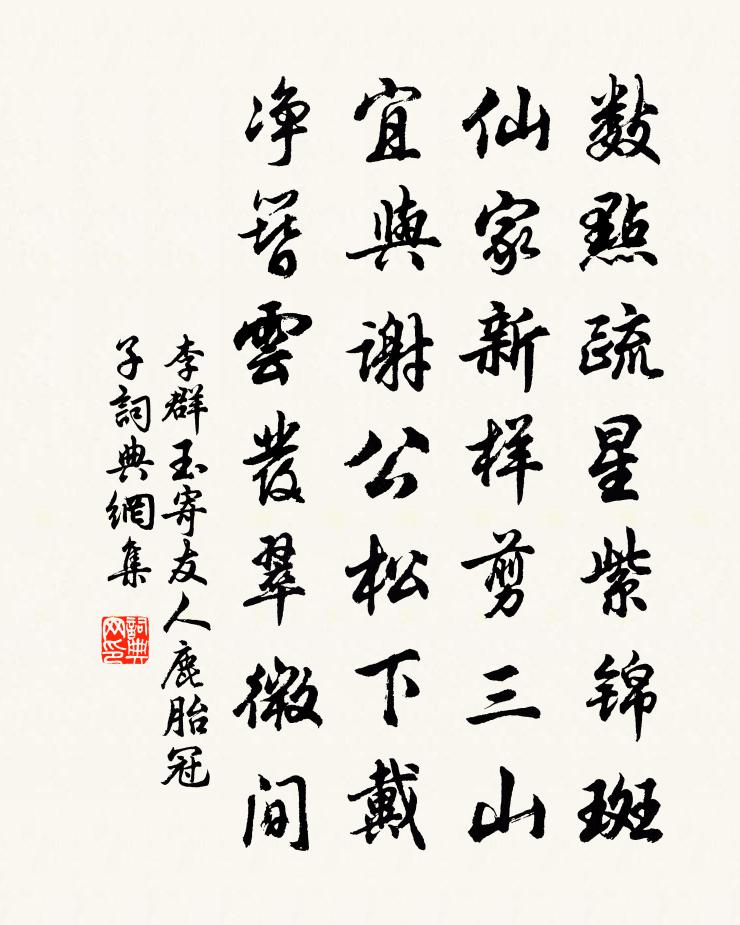 數點疏星紫錦斑
仙家新样剪三山
宜與謝公松下戴
净簪雲發翠微间
李群玉寄友人鹿胎冠
子詞典網集
詞典网印